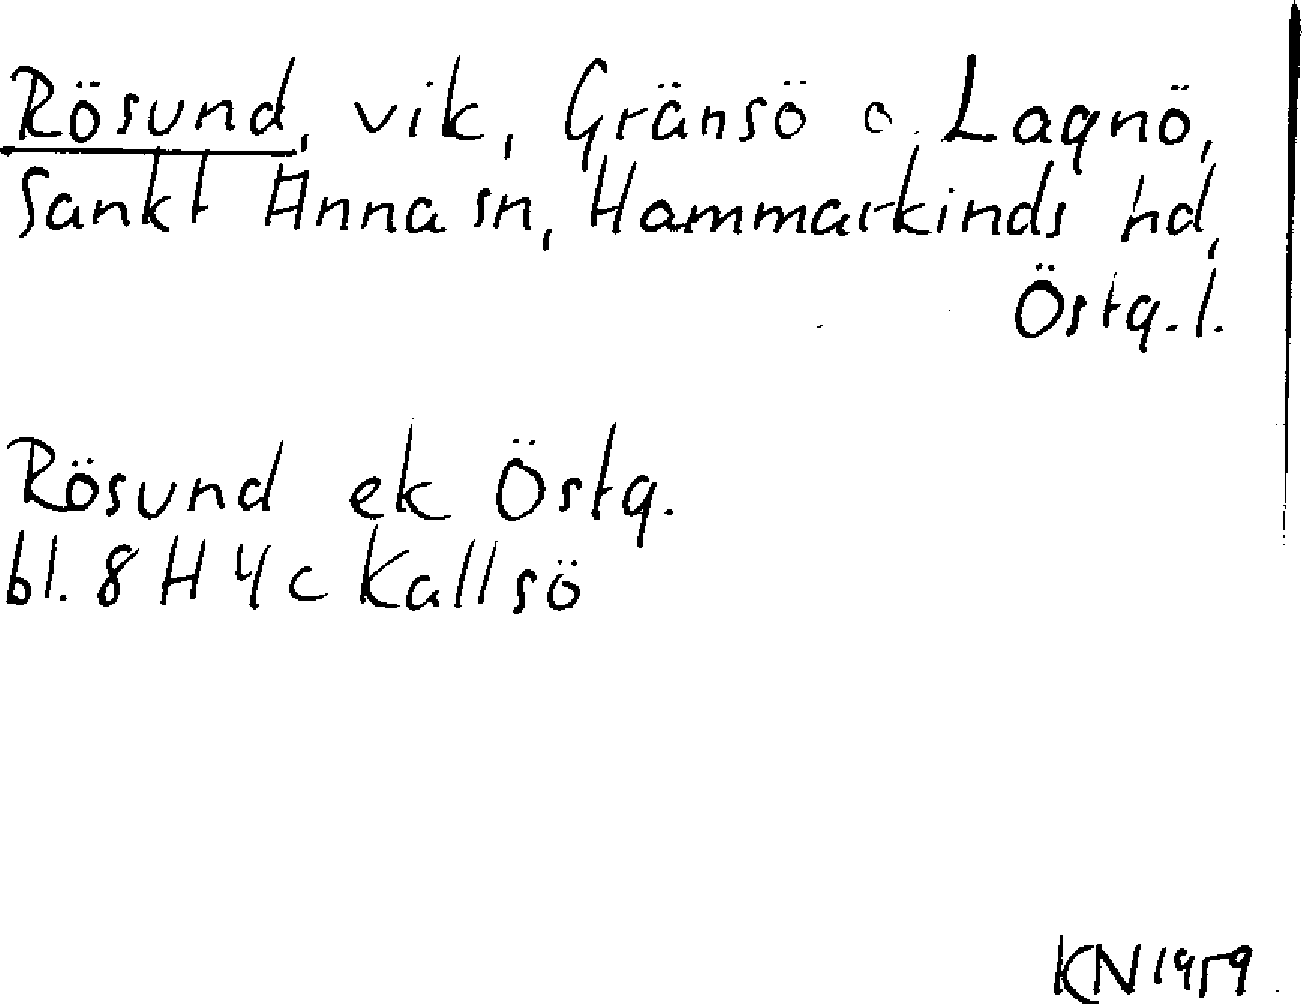 Rösund, vik, Gränsö o. Lagnö,
Sankt Anna sn, Hammarkinds hd,
Östg. l.
Rösund ek Östg.
bl. 8 H 4 c Kallsö
KN 1959